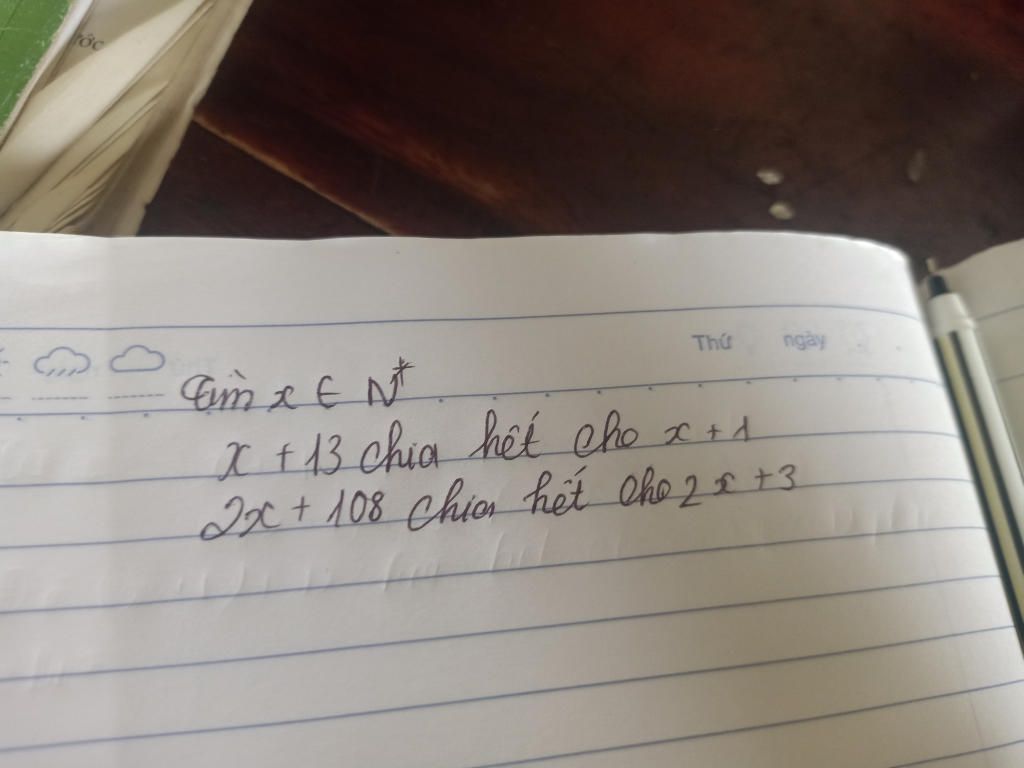 ước
Thứ ngày
Tìm x ∈ N*
x + 13 chia hết cho x + 1
2x + 108 chia hết cho 2x + 3